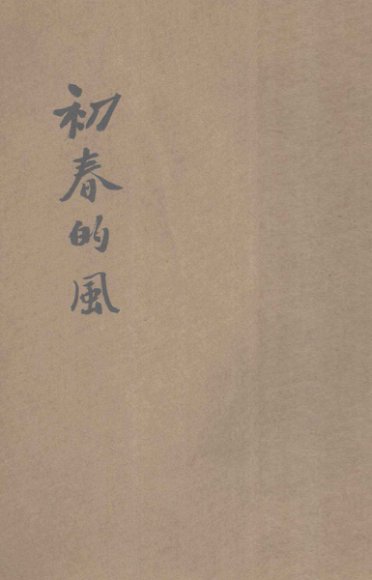 初春的風